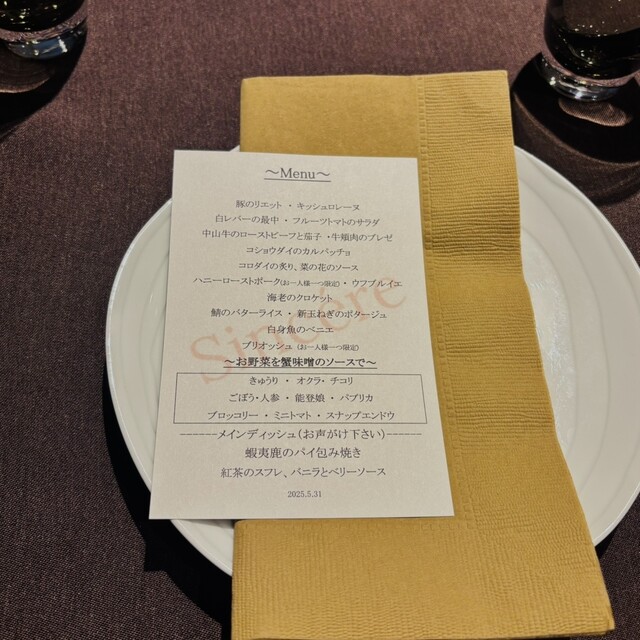 ～Menu～
豚のリエット ・ キッシュロレーヌ
白レバーの最中 ・ フルーツトマトのサラダ
中山牛のローストビーフと茄子 ・牛頬肉のブレゼ
コショウダイのカルパッチョ
コロダイの炙り、菜の花のソース
ハニーローストポーク(お一人様一つ限定) ・ ウフブルイエ
海老のクロケット
鯖のバターライス ・ 新玉ねぎのポタージュ
白身魚のベニエ
ブリオッシュ (お一人様一つ限定)
～お野菜を蟹味噌のソースで～
きゅうり ・ オクラ・ チコリ
ごぼう・人参 ・ 能登娘 ・ パプリカ
ブロッコリー ・ ミニトマト ・ スナップエンドウ
------メインディッシュ(お声がけ下さい)------
蝦夷鹿のパイ包み焼き
紅茶のスフレ、バニラとベリーソース
2025.5.31
Sincère